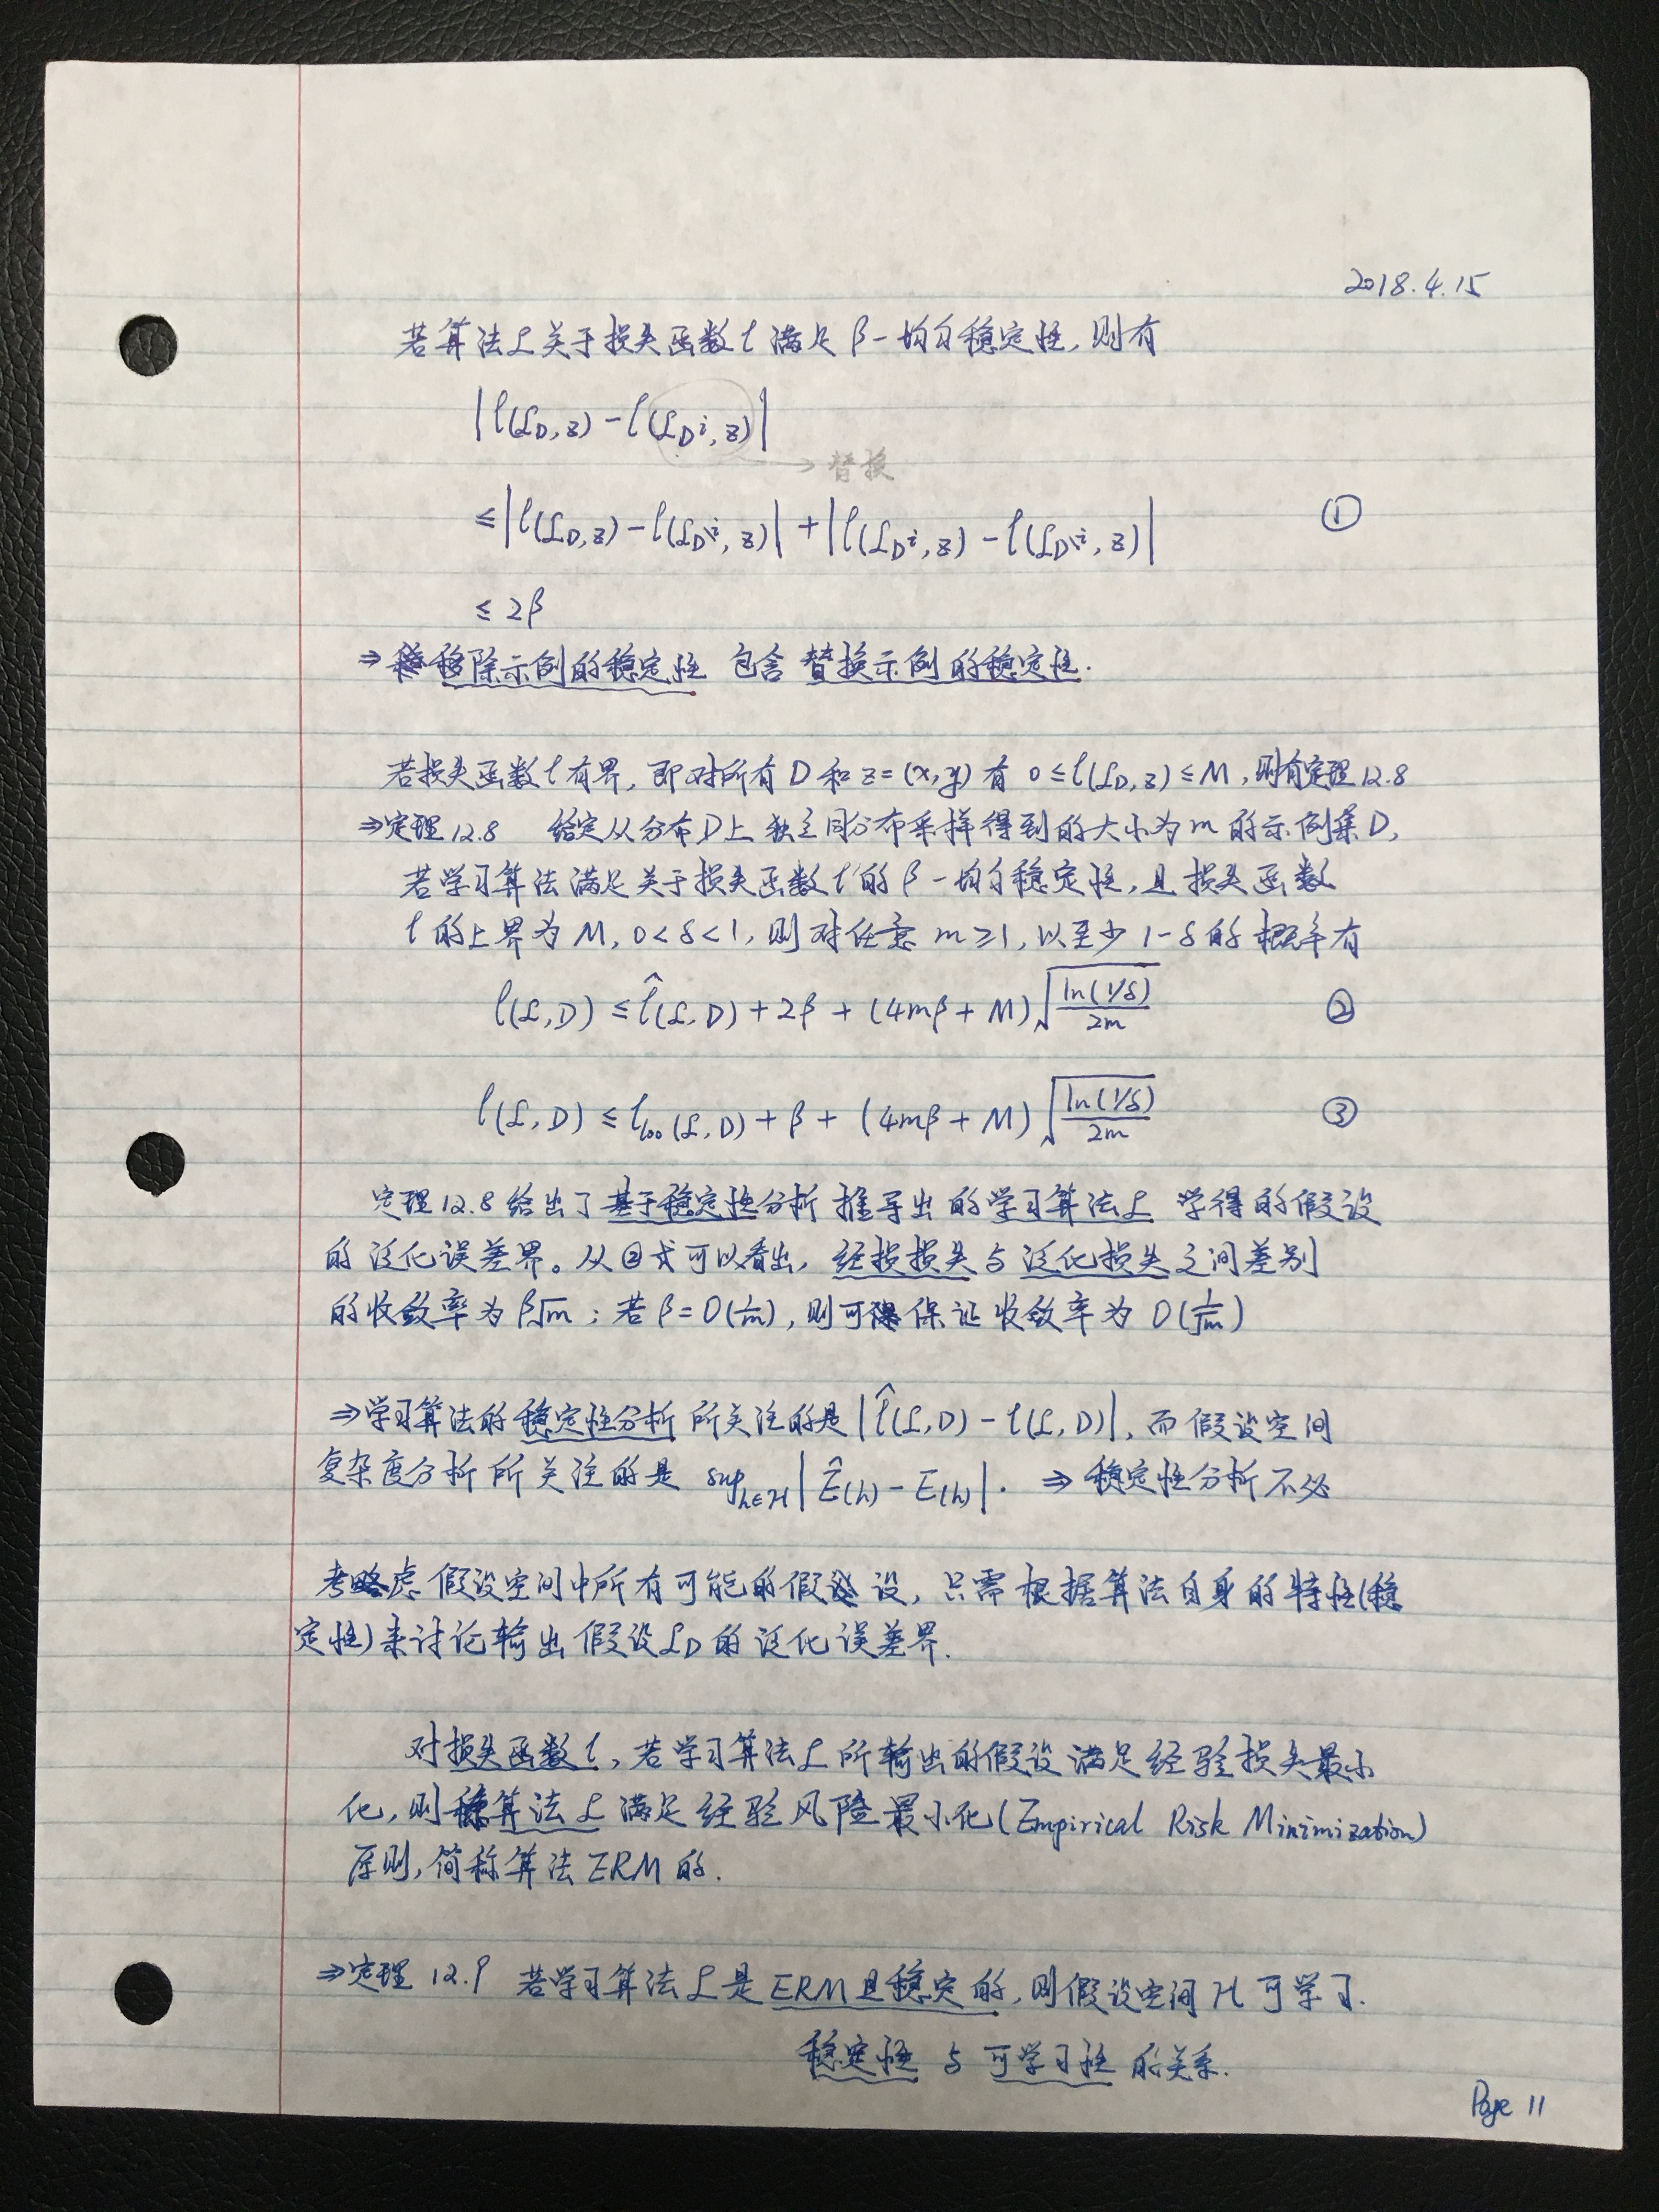 2018.4.15
若算法𝔏关于损失函数ℓ满足β-均匀稳定性,则有
|ℓ(𝔏_D, z) - ℓ(𝔏_{D^i}, z)|
→ 替换
≤ |ℓ(𝔏_D, z) - ℓ(𝔏_{D^{\i}}, z)| + |ℓ(𝔏_{D^i}, z) - ℓ(𝔏_{D^{\i}}, z)| ①
≤ 2β
⇒ 移除示例的稳定性 包含 替换示例的稳定性.
若损失函数ℓ有界, 即对所有 D 和 z=(x,y) 有 0≤ℓ(𝔏_D, z)≤M, 则有定理12.8
⇒定理12.8 给定从分布D上独立同分布采样得到的大小为m的示例集D,
若学习算法满足关于损失函数ℓ的β-均匀稳定性, 且损失函数
ℓ的上界为M, 0<δ<1, 则对任意 m≥1, 以至少 1-δ 的概率有
ℓ(𝔏, D) ≤ ℓ̂(𝔏, D) + 2β + (4mβ + M)√(ln(1/δ)/2m) ②
ℓ(𝔏, D) ≤ ℓ_{loo}(𝔏, D) + β + (4mβ + M)√(ln(1/δ)/2m) ③
定理12.8给出了基于稳定性分析推导出的学习算法𝔏 学得的假设
的泛化误差界。从②式可以看出, 经损损失与泛化损失之间差别
的收敛率为β√m ; 若β=O(1/m), 则可保证收敛率为 O(1/√m)
⇒学习算法的稳定性分析所关注的是|ℓ̂(𝔏,D) - ℓ(𝔏,D)|, 而假设空间
复杂度分析所关注的是 sup_{h∈H}|Ê(h) - E(h)|. ⇒ 稳定性分析不必
考虑假设空间中所有可能的假设, 只需根据算法自身的特性(稳
定性)来讨论输出假设𝔏_D的泛化误差界.
对损失函数ℓ, 若学习算法𝔏所输出的假设满足经验损失最小
化, 则称算法𝔏满足经验风险最小化(Empirical Risk Minimization)
原则, 简称算法ERM的.
⇒定理 12.9 若学习算法𝔏是ERM且稳定的, 则假设空间H可学习.
稳定性与可学习性的关系.
Page 11